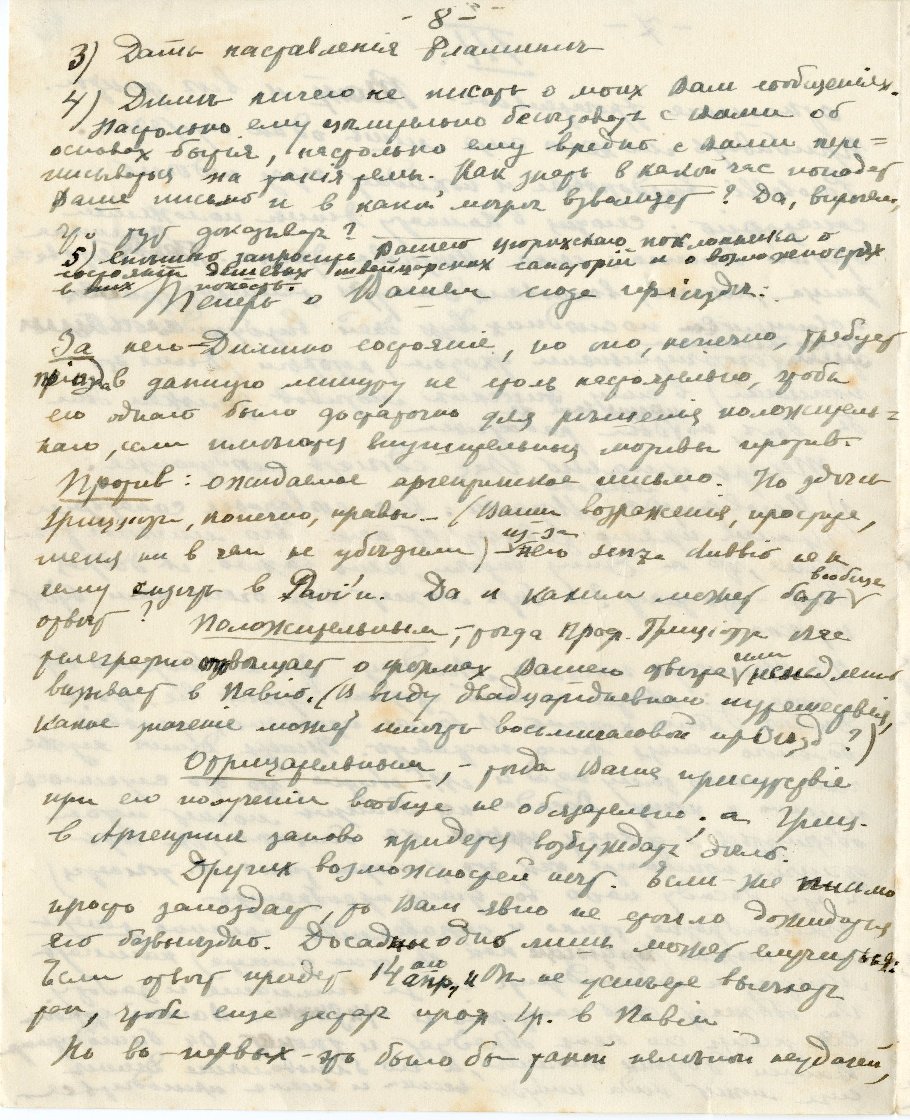 - 8 -
3) Дать наставленія Фламиніи
4) Димѣ ничего не писать о моихъ Вам сообщеніях.
Насколько ему цѣлительно бесѣдовать с Вами об
основах бытія, настолько ему вредно с Вами пере=
писываться на такія темы. Как знать в какой час попадет
Ваше письмо и в какой мигъ взвалит? Да, впрочем,
доказывать?
5) спѣшно запросить Вашего цюрихскаго поклонника о
состояніи дешевых швейцарских санаторій и о возможностях
в них попасть.
Теперь о Вашем сюда пріѣздѣ:
За него - Димино состояніе, но оно, конечно, требует
пріѣзда в данную минуту не столь настоятельно, чтобы
его одного было достаточно для рѣшенія положитель=
наго, если имѣются внушительные мотивы против.
Против: ожидаемое аргентинское письмо. Но здѣсь
конечно, правы - (Ваши возраженія, простите,
меня ни в чем не убѣдили) из-за него senza dubbio не к
чему сидѣть в Pavi'и. Да и каким может быть вообще
отвѣт? Положительным, - тогда проф. Грициоти Вас
телеграфно о формах Вашего отвѣта или немедленно
вызывает в Павію. (В виду двадцатидневнаго путешествія,
какое значеніе может имѣть восьмичасовой проѣзд?)
Отрицательным, - тогда Ваше присутствіе
при его полученіи вообще не обязательно, а Гриц.
в Аргентине заново придется возбуждать дѣло.
Других возможностей нѣт. Если-же письмо
просто запоздает, то Вам явно не стоило дожидаться
его безвыѣздно. Досадное одно лишь может случиться:
Если отвѣт придет 14 апр. и Вы не успѣете выѣхать
так, чтобы еще застать проф. Гр. в Павіи
Но во-первых - это было бы такой нелѣпой неудачей,